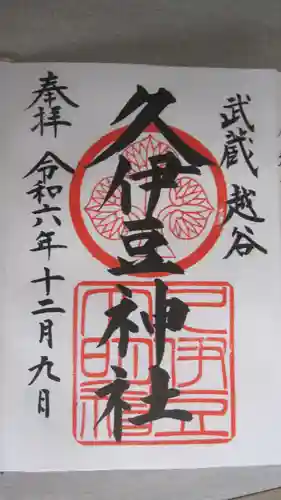 武蔵越谷
久伊豆神社
奉拝
令和六年十二月九日